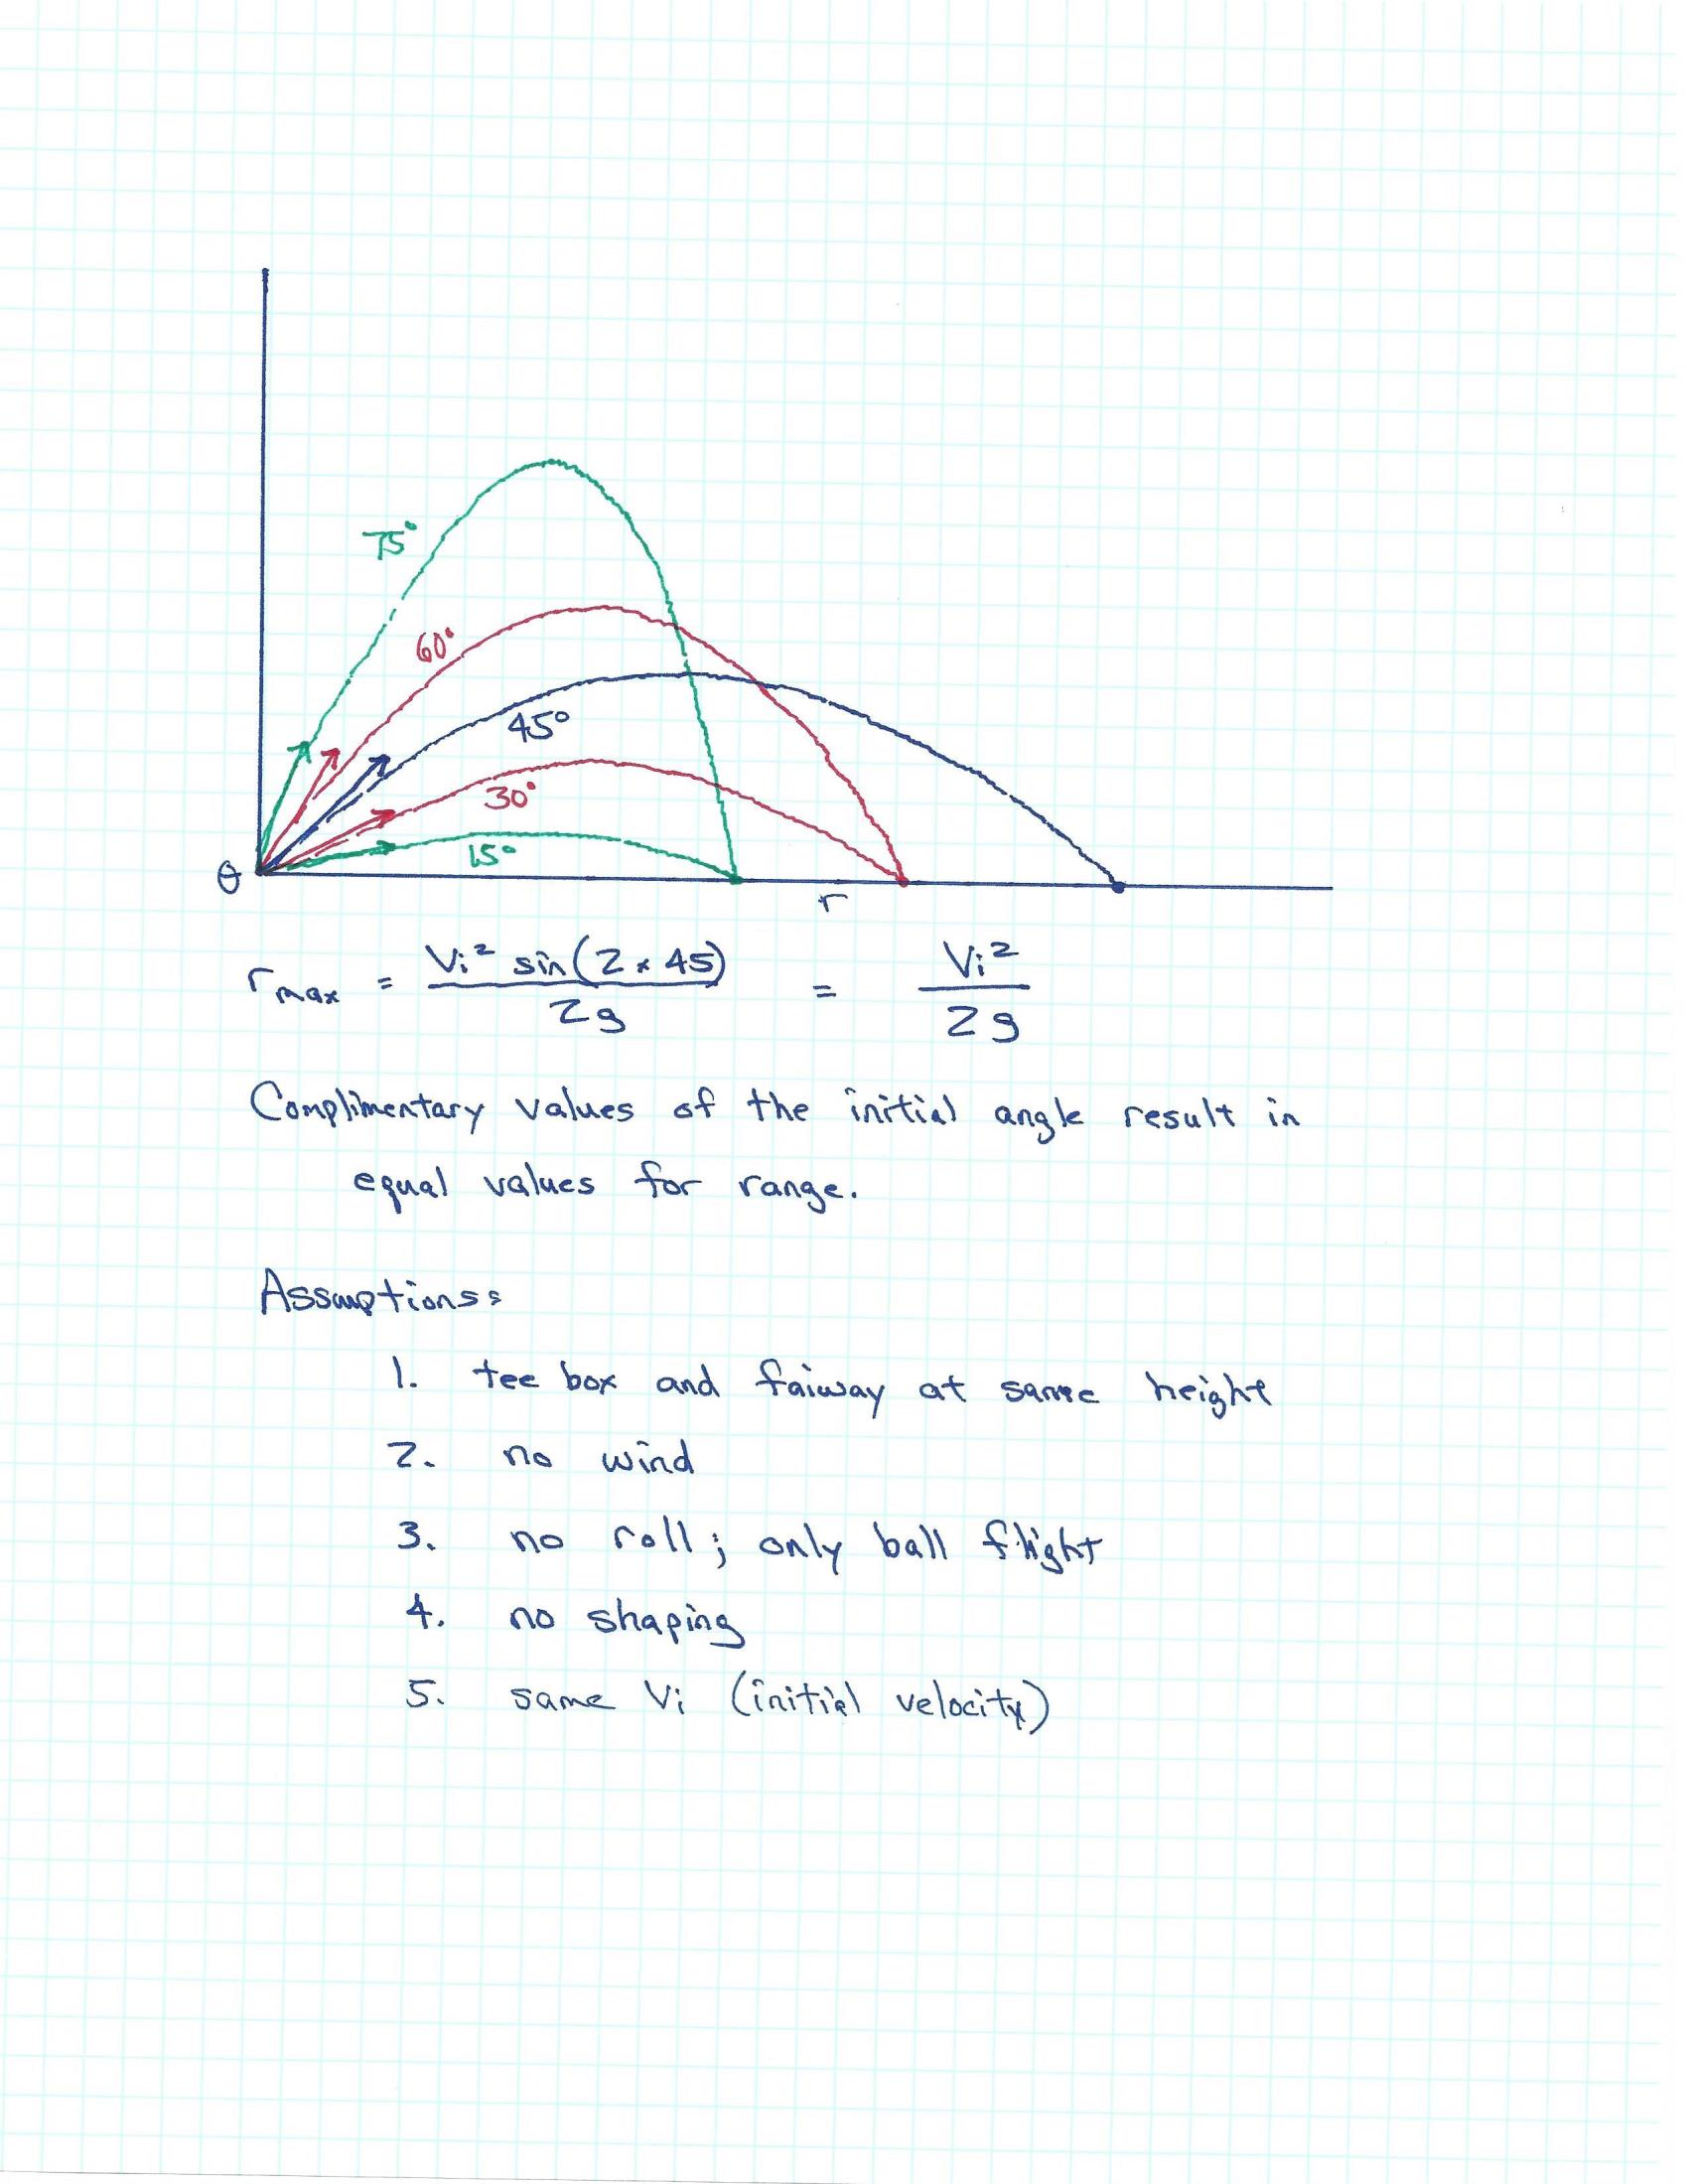 75°
60°
45°
30°
15°
θ
r
r max = Vi² sin(2 × 45) / 2g = Vi² / 2g
Complimentary values of the initial angle result in
equal values for range.
Assumptions:
1. tee box and faiway at same height
2. no wind
3. no roll; only ball flight
4. no shaping
5. same Vi (initial velocity)